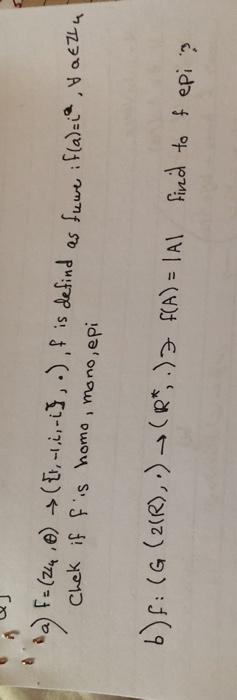 a) f=(Z4, ⊕) → ({1,-1,i,-i}, ·), f is defind as : f(a)=i^a, ∀ a∈Z4
Chek if f is homo, mono, epi
b) f: (G(2(R), ·) → (R*, ·) ∋ f(A) = |A| find to f epi ?